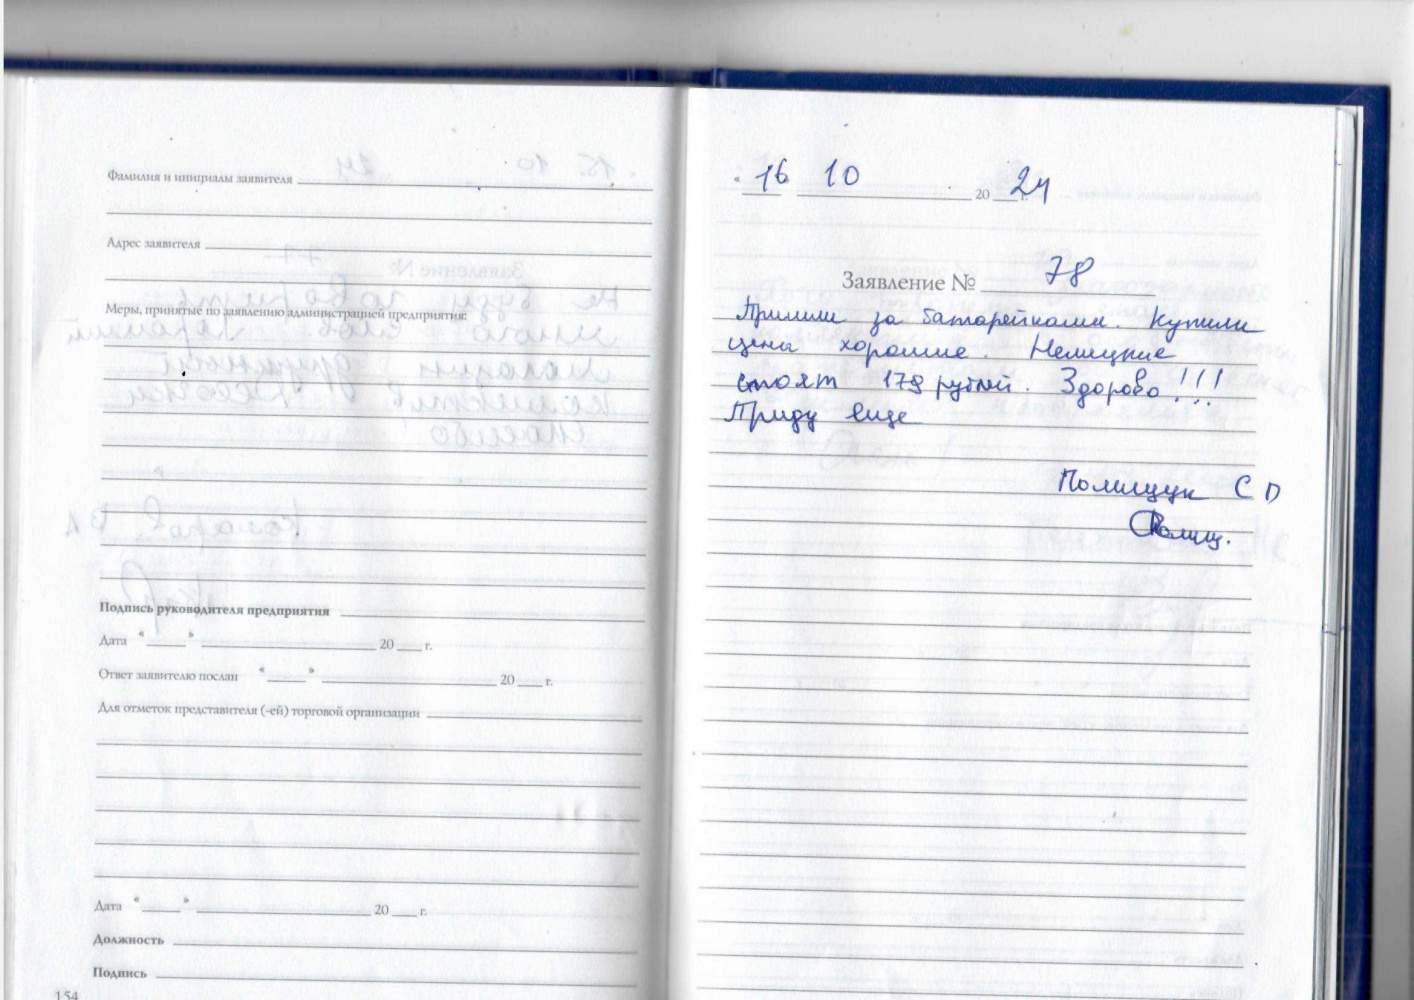 Фамилия и инициалы заявителя
Адрес заявителя
Меры, принятые по заявлению администрацией предприятия:
Подпись руководителя предприятия
Дата "____" ____ 20 ___ г.
Ответ заявителю послан "____" ____ 20 ___ г.
Для отметок представителя (-ей) торговой организации
Дата "____" ____ 20 ___ г.
Должность
Подпись
154
" 16 10 20 24 г.
Заявление № 78
Пришли за батарейками. Купили
цена хорошие. Немецкие
стоят 178 рублей. Здорово!!!
Приду еще
Полищук С П
Полищ.